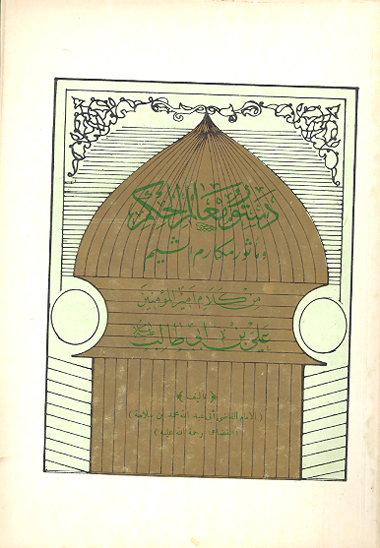 دستور معالم الحكم
ومأثور مكارم الشيم
من كلام أمير المؤمنين
علي بن أبي طالب
تأليف
(الامام القاضي أبي عبد الله محمد بن سلامة)
(القضاعي رحمة الله عليه)